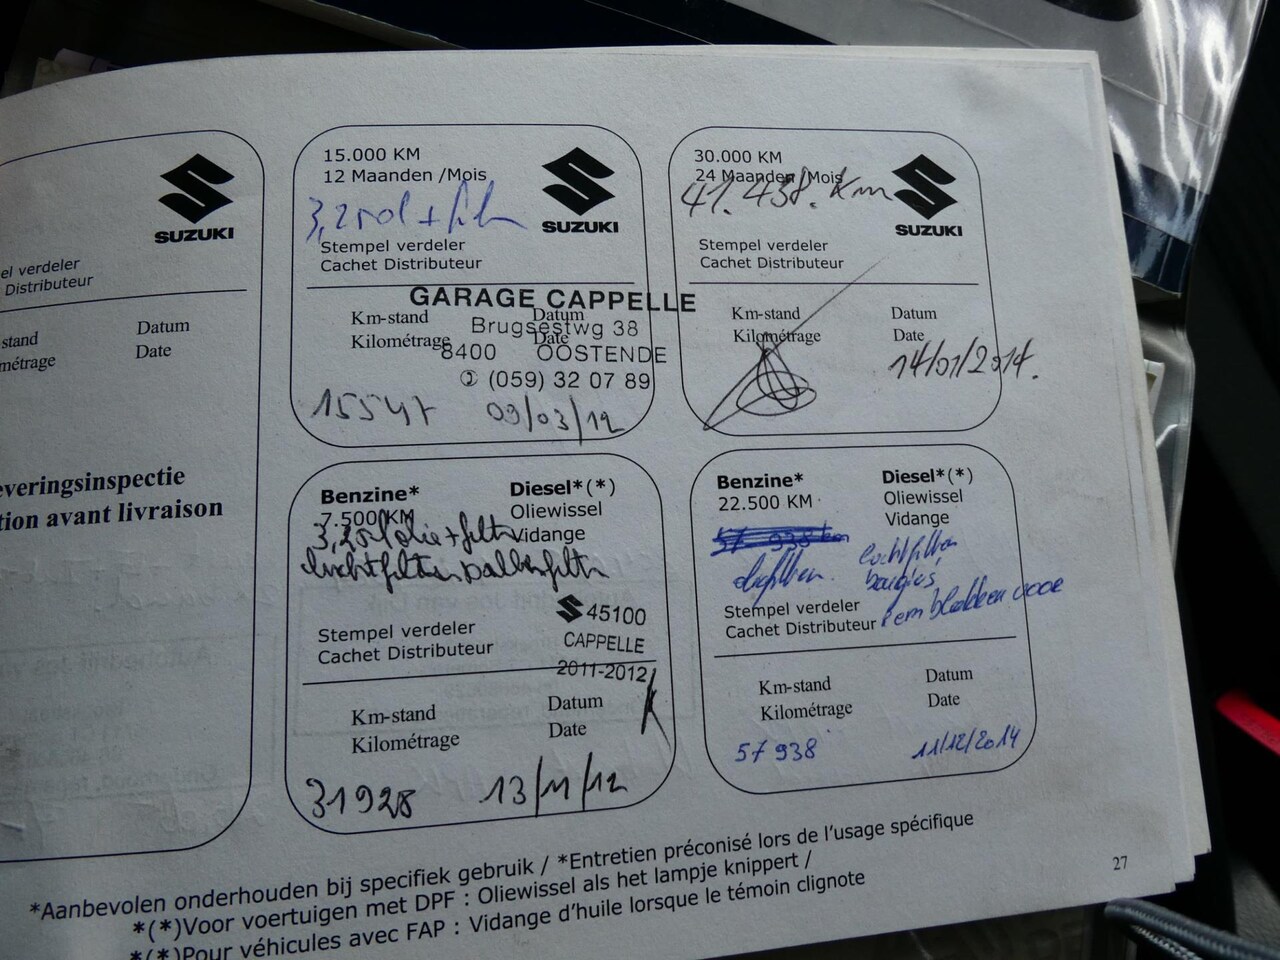 SUZUKI
el verdeler
Distributeur
stand Datum
métrage Date
everingsinspectie
tion avant livraison
15.000 KM
12 Maanden /Mois
SUZUKI
Stempel verdeler
Cachet Distributeur
GARAGE CAPPELLE
Km-stand Datum
Brugsestwg 38
Kilométrage Date
8400 OOSTENDE
(059) 32 07 89
15547 09/03/12
30.000 KM
24 Maanden /Mois
41.438. Km
SUZUKI
Stempel verdeler
Cachet Distributeur
Km-stand Datum
Kilométrage Date
14/01/2014.
Benzine* Diesel*(*)
7.500 KM Oliewissel
Vidange
45100
Stempel verdeler
CAPPELLE
Cachet Distributeur
2011-2012
Km-stand Datum
Kilométrage Date
31928 13/11/12
Benzine* Diesel*(*)
22.500 KM Oliewissel
Vidange
57 938 km
luchtfilter
bougies,
remblokken voor
Stempel verdeler
Cachet Distributeur
Km-stand Datum
Kilométrage Date
57 938 11/12/2014
*Aanbevolen onderhouden bij specifiek gebruik / *Entretien préconisé lors de l'usage spécifique
*(*)Voor voertuigen met DPF : Oliewissel als het lampje knippert /
*(*)Pour véhicules avec FAP : Vidange d'huile lorsque le témoin clignote
27